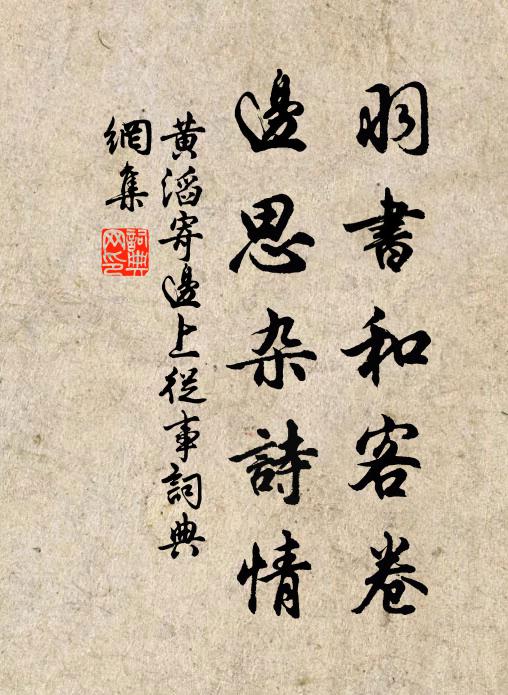 羽書和客卷
邊思杂詩情
黃滔寄邊上從事詞典
網集
詞典
网印